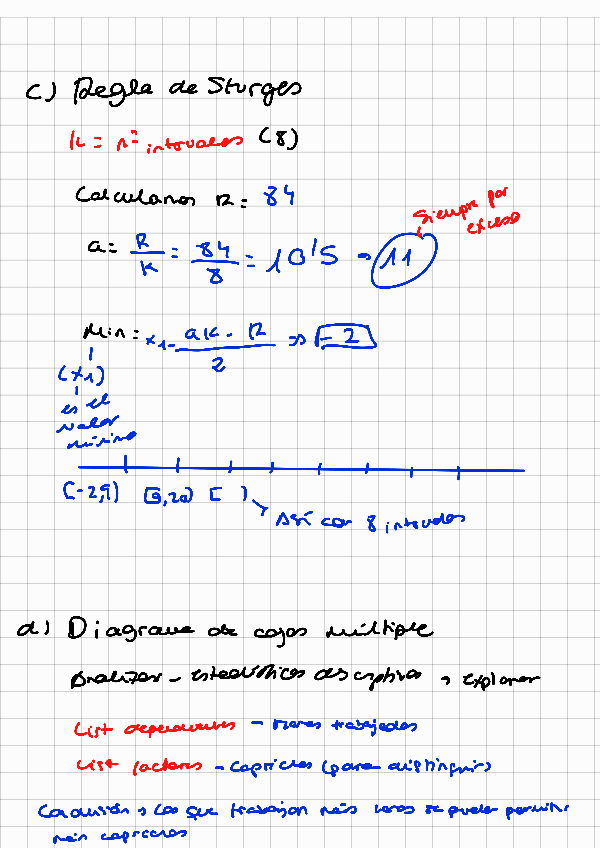 c) Regla de Sturges
K = nº intervalos (8)
Calculamos R = 84
Siempre por
exceso
a = R/K = 84/8 = 10'5 → 11
Min = x1 - (aK - R)/2 => -2
(x1)
es el
valor
mínimo
[-2,9) [9,20) [ )
Así con 8 intervalos
d) Diagrama de cajas múltiple
Analizar - estadísticos descriptivos → explorar
List dependientes - meses trabajados
List factores - caprichos (para distinguir)
Conclusión → Los que trabajan más meses se pueden permitir
más caprichos